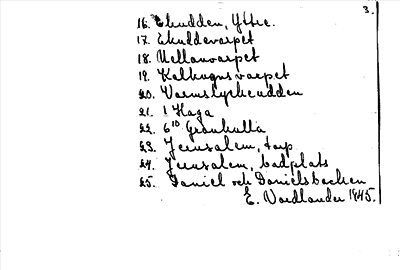 3.
16. Ekudden, Yttre.
17. Ekuddevarpet
18. Mellanvarpet
19. Kalkugnsvarpet
20. Varmslyckeudden
21. 1 Haga
22. 6^10 Granhulta
23. Jerusalem, torp
24. Jerusalem, badplats
25. Daniel och Danielsbacken
E. Vordlander 1945.